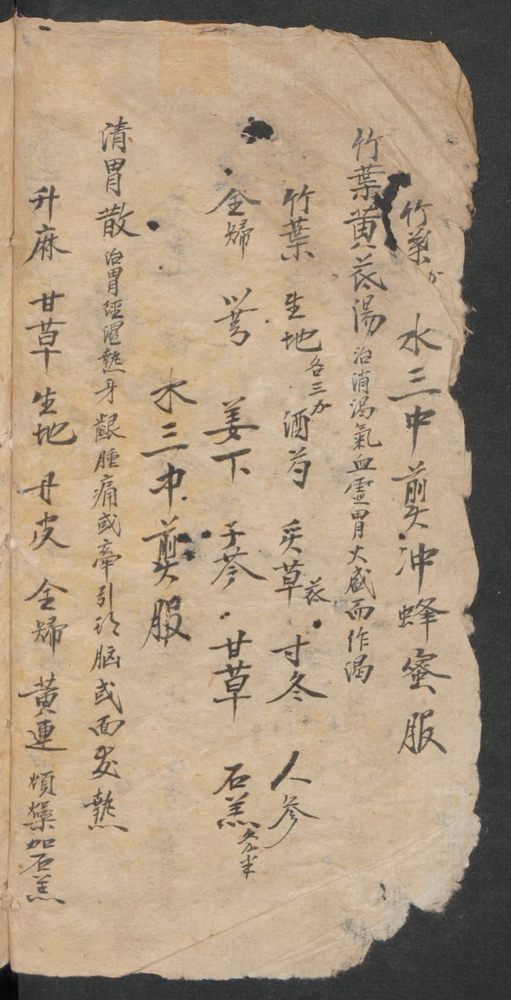 竹葉
水三中煎冲蜂蜜服
竹葉黃芪湯治消渴氣血虛胃火盛而作渴
竹葉 生地各三分 酒芍 炙草 芪 寸冬 人參
全歸 川芎 姜下 子芩 甘草 石羔
水三中煎服
清胃散治胃經濕熱牙齦腫痛或牽引頭脑或面發熱
升麻 甘草 生地 丹皮 全歸 黃連 煩燥加石羔